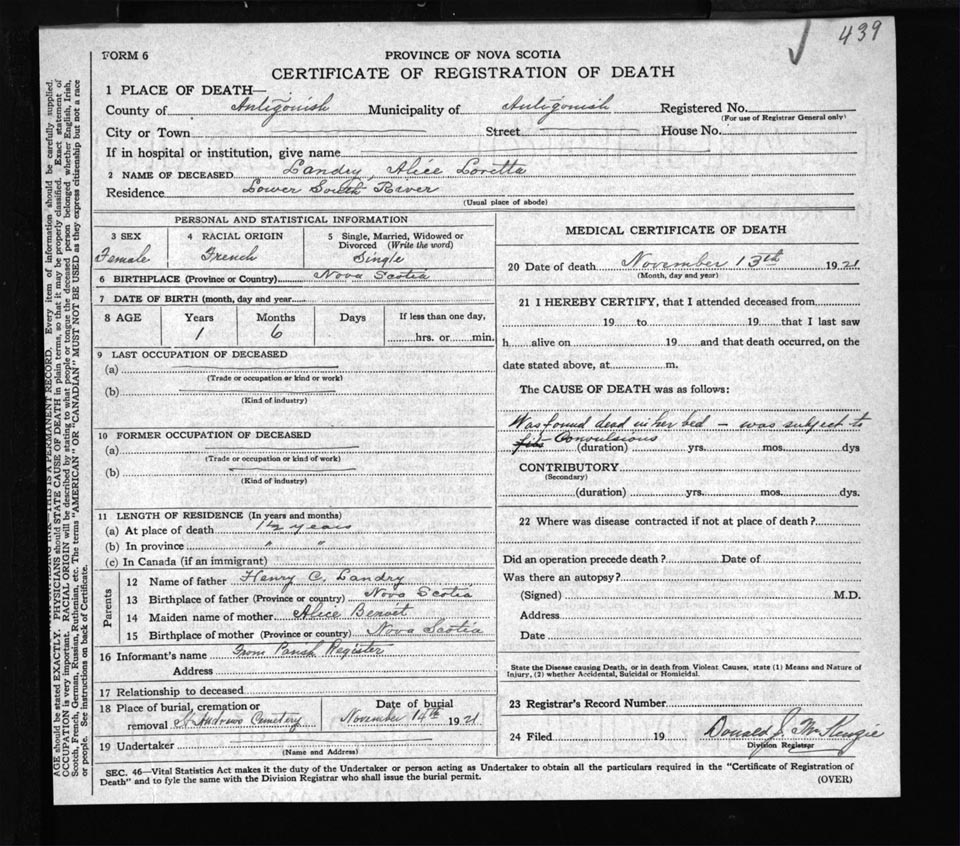 439
FORM 6
PROVINCE OF NOVA SCOTIA
CERTIFICATE OF REGISTRATION OF DEATH
1 PLACE OF DEATH—
County of Antigonish Municipality of Antigonish Registered No.
(For use of Registrar General only)
City or Town Street House No.
If in hospital or institution, give name
2 NAME OF DECEASED Landry, Alice Loretta
Residence Lower South River
(Usual place of abode)
PERSONAL AND STATISTICAL INFORMATION
3 SEX 4 RACIAL ORIGIN 5 Single, Married, Widowed or Divorced (Write the word)
Female French Single
6 BIRTHPLACE (Province or Country) Nova Scotia
7 DATE OF BIRTH (month, day and year)
8 AGE Years Months Days If less than one day,
1 6 hrs. or min.
9 LAST OCCUPATION OF DECEASED
(a)
(Trade or occupation or kind or work)
(b)
(Kind of industry)
10 FORMER OCCUPATION OF DECEASED
(a)
(Trade or occupation or kind of work)
(b)
(Kind of industry)
11 LENGTH OF RESIDENCE (In years and months)
(a) At place of death 1½ years
(b) In province " "
(c) In Canada (if an immigrant)
Parents
12 Name of father Henry C. Landry
13 Birthplace of father (Province or country) Nova Scotia
14 Maiden name of mother Alice Benoit
15 Birthplace of mother (Province or country) Nova Scotia
16 Informant's name From Parish Register
Address
17 Relationship to deceased
18 Place of burial, cremation or Date of burial
removal St Andrews Cemetery November 14th 1921
19 Undertaker
(Name and Address)
MEDICAL CERTIFICATE OF DEATH
20 Date of death November 13th 1921
(Month, day and year)
21 I HEREBY CERTIFY, that I attended deceased from
19 to 19 that I last saw
h alive on 19 and that death occurred, on the
date stated above, at m.
The CAUSE OF DEATH was as follows:
Was found dead in her bed – was subject to
fits Convulsions
(duration) yrs. mos. dys
CONTRIBUTORY
(Secondary)
(duration) yrs. mos. dys.
22 Where was disease contracted if not at place of death?
Did an operation precede death? Date of
Was there an autopsy?
(Signed) M.D.
Address
Date
State the Disease causing Death, or in death from Violent Causes, state (1) Means and Nature of
Injury, (2) whether Accidental, Suicidal or Homicidal.
23 Registrar's Record Number
24 Filed 19 Donald J. McKenzie
Division Registrar
SEC. 46—Vital Statistics Act makes it the duty of the Undertaker or person acting as Undertaker to obtain all the particulars required in the "Certificate of Registration of
Death" and to fyle the same with the Division Registrar who shall issue the burial permit. (OVER)
THIS IS A PERMANENT RECORD. Every item of information should be carefully supplied.
AGE should be stated EXACTLY. PHYSICIANS should STATE CAUSE OF DEATH in plain terms, so that it may be properly classified. Exact statement of
OCCUPATION is very important. RACIAL ORIGIN will be described by stating to what people or tongue the deceased person belonged whether English, Irish,
Scotch, French, German, Russian, Ruthenian, etc. The terms "AMERICAN" OR "CANADIAN" MUST NOT BE USED as they express citizenship but not a race
or people. See instructions on back of Certificate.